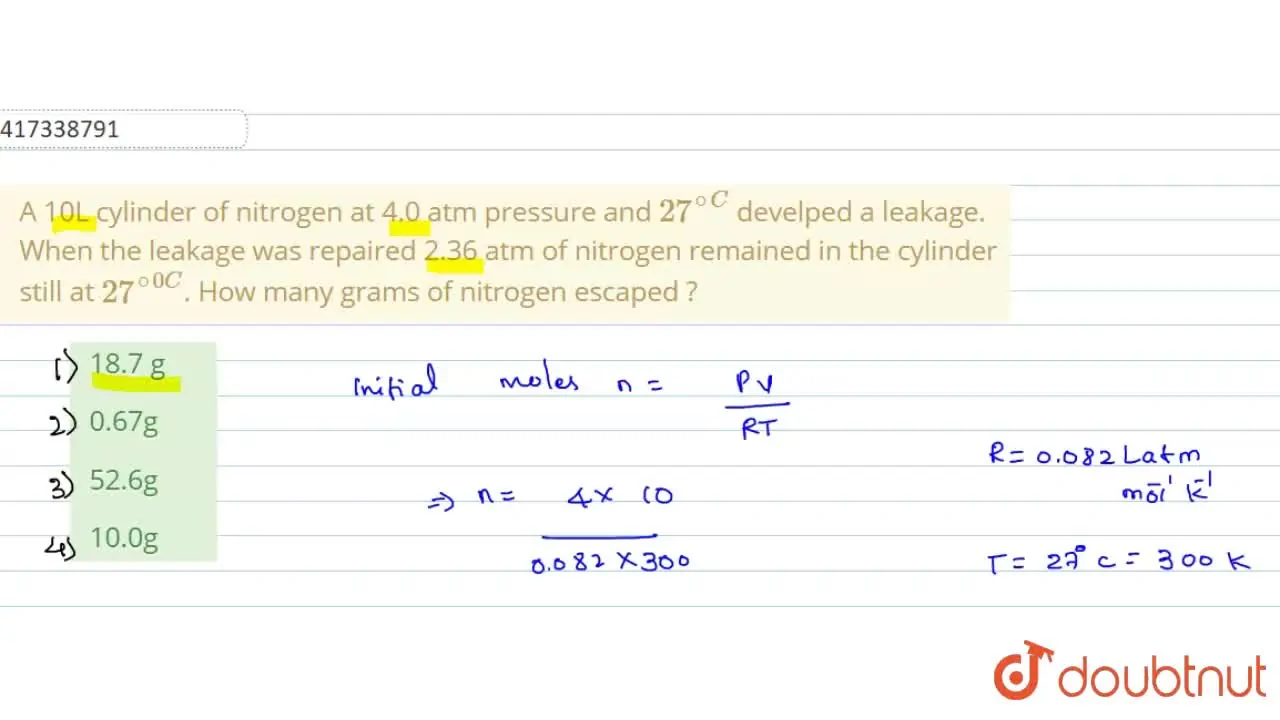 417338791
A 10L cylinder of nitrogen at 4.0 atm pressure and 27°C develped a leakage.
When the leakage was repaired 2.36 atm of nitrogen remained in the cylinder
still at 27°0C. How many grams of nitrogen escaped ?
1) 18.7 g
2) 0.67g
3) 52.6g
4) 10.0g
Initial moles n = PV
RT
⇒ n = 4 × 10
0.082 × 300
R = 0.082 L atm
mol⁻¹ K⁻¹
T = 27° C = 300 K
doubtnut